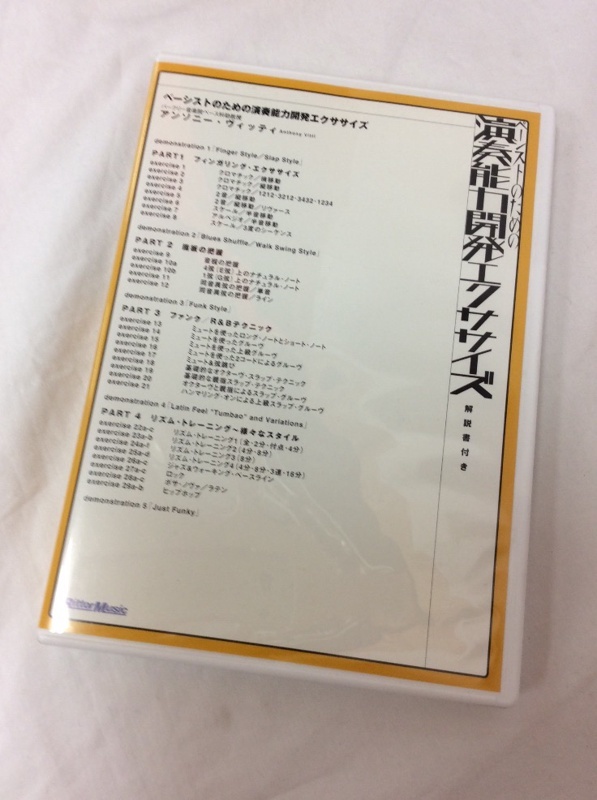 ベーシストのための演奏能力開発エクササイズ
バークリー音楽院ベース科助教授
アンソニー・ヴィッティ Anthony Vitti
demonstration 1「Finger Style／Slap Style」
PART1 フィンガリング・エクササイズ
exercise 1 クロマチック／横移動
exercise 2 クロマチック／縦移動
exercise 3 クロマチック／1212-3212-3432-1234
exercise 4 2音／縦移動
exercise 5 2音／縦移動／リヴァース
exercise 6 スケール／半音移動
exercise 7 アルペジオ／半音移動
exercise 8 スケール／3度のシーケンス
demonstration 2「Blues Shuffle／Walk Swing Style」
PART 2 指板の把握
exercise 9 音程の把握
exercise 10a 4弦（E弦）上のナチュラル・ノート
exercise 10b 1弦（G弦）上のナチュラル・ノート
exercise 11 同音異弦の把握／単音
exercise 12 同音異弦の把握／ライン
demonstration 3「Funk Style」
PART 3 ファンク／R&Bテクニック
exercise 13 ミュートを使ったロング・ノートとショート・ノート
exercise 14 ミュートを使ったグルーヴ
exercise 15 ミュートを使った上級グルーヴ
exercise 16 ミュートを使った2コードによるグルーヴ
exercise 17 ミュート&弦跳び
exercise 18 基礎的なオクターヴ・スラップ・テクニック
exercise 19 基礎的な親指スラップ・テクニック
exercise 20 オクターヴと親指によるスラップ・グルーヴ
exercise 21 ハンマリング・オンによる上級スラップ・グルーヴ
demonstration 4「Latin Feel "Tumbao" and Variations」
PART 4 リズム・トレーニング〜様々なスタイル
exercise 22a-c リズム・トレーニング1（全・2分・付点・4分）
exercise 23a-b リズム・トレーニング2（4分・8分）
exercise 24a-f リズム・トレーニング3（8分）
exercise 25a-d リズム・トレーニング4（4分・8分・3連・16分）
exercise 26a-c ジャズ&ウォーキング・ベースライン
exercise 27a-c ロック
exercise 28a-c ボサ・ノヴァ／ラテン
exercise 29a-b ヒップホップ
demonstration 5「Just Funky」
RittorMusic
ベーシストのための
演奏能力開発エクササイズ
解説書付き